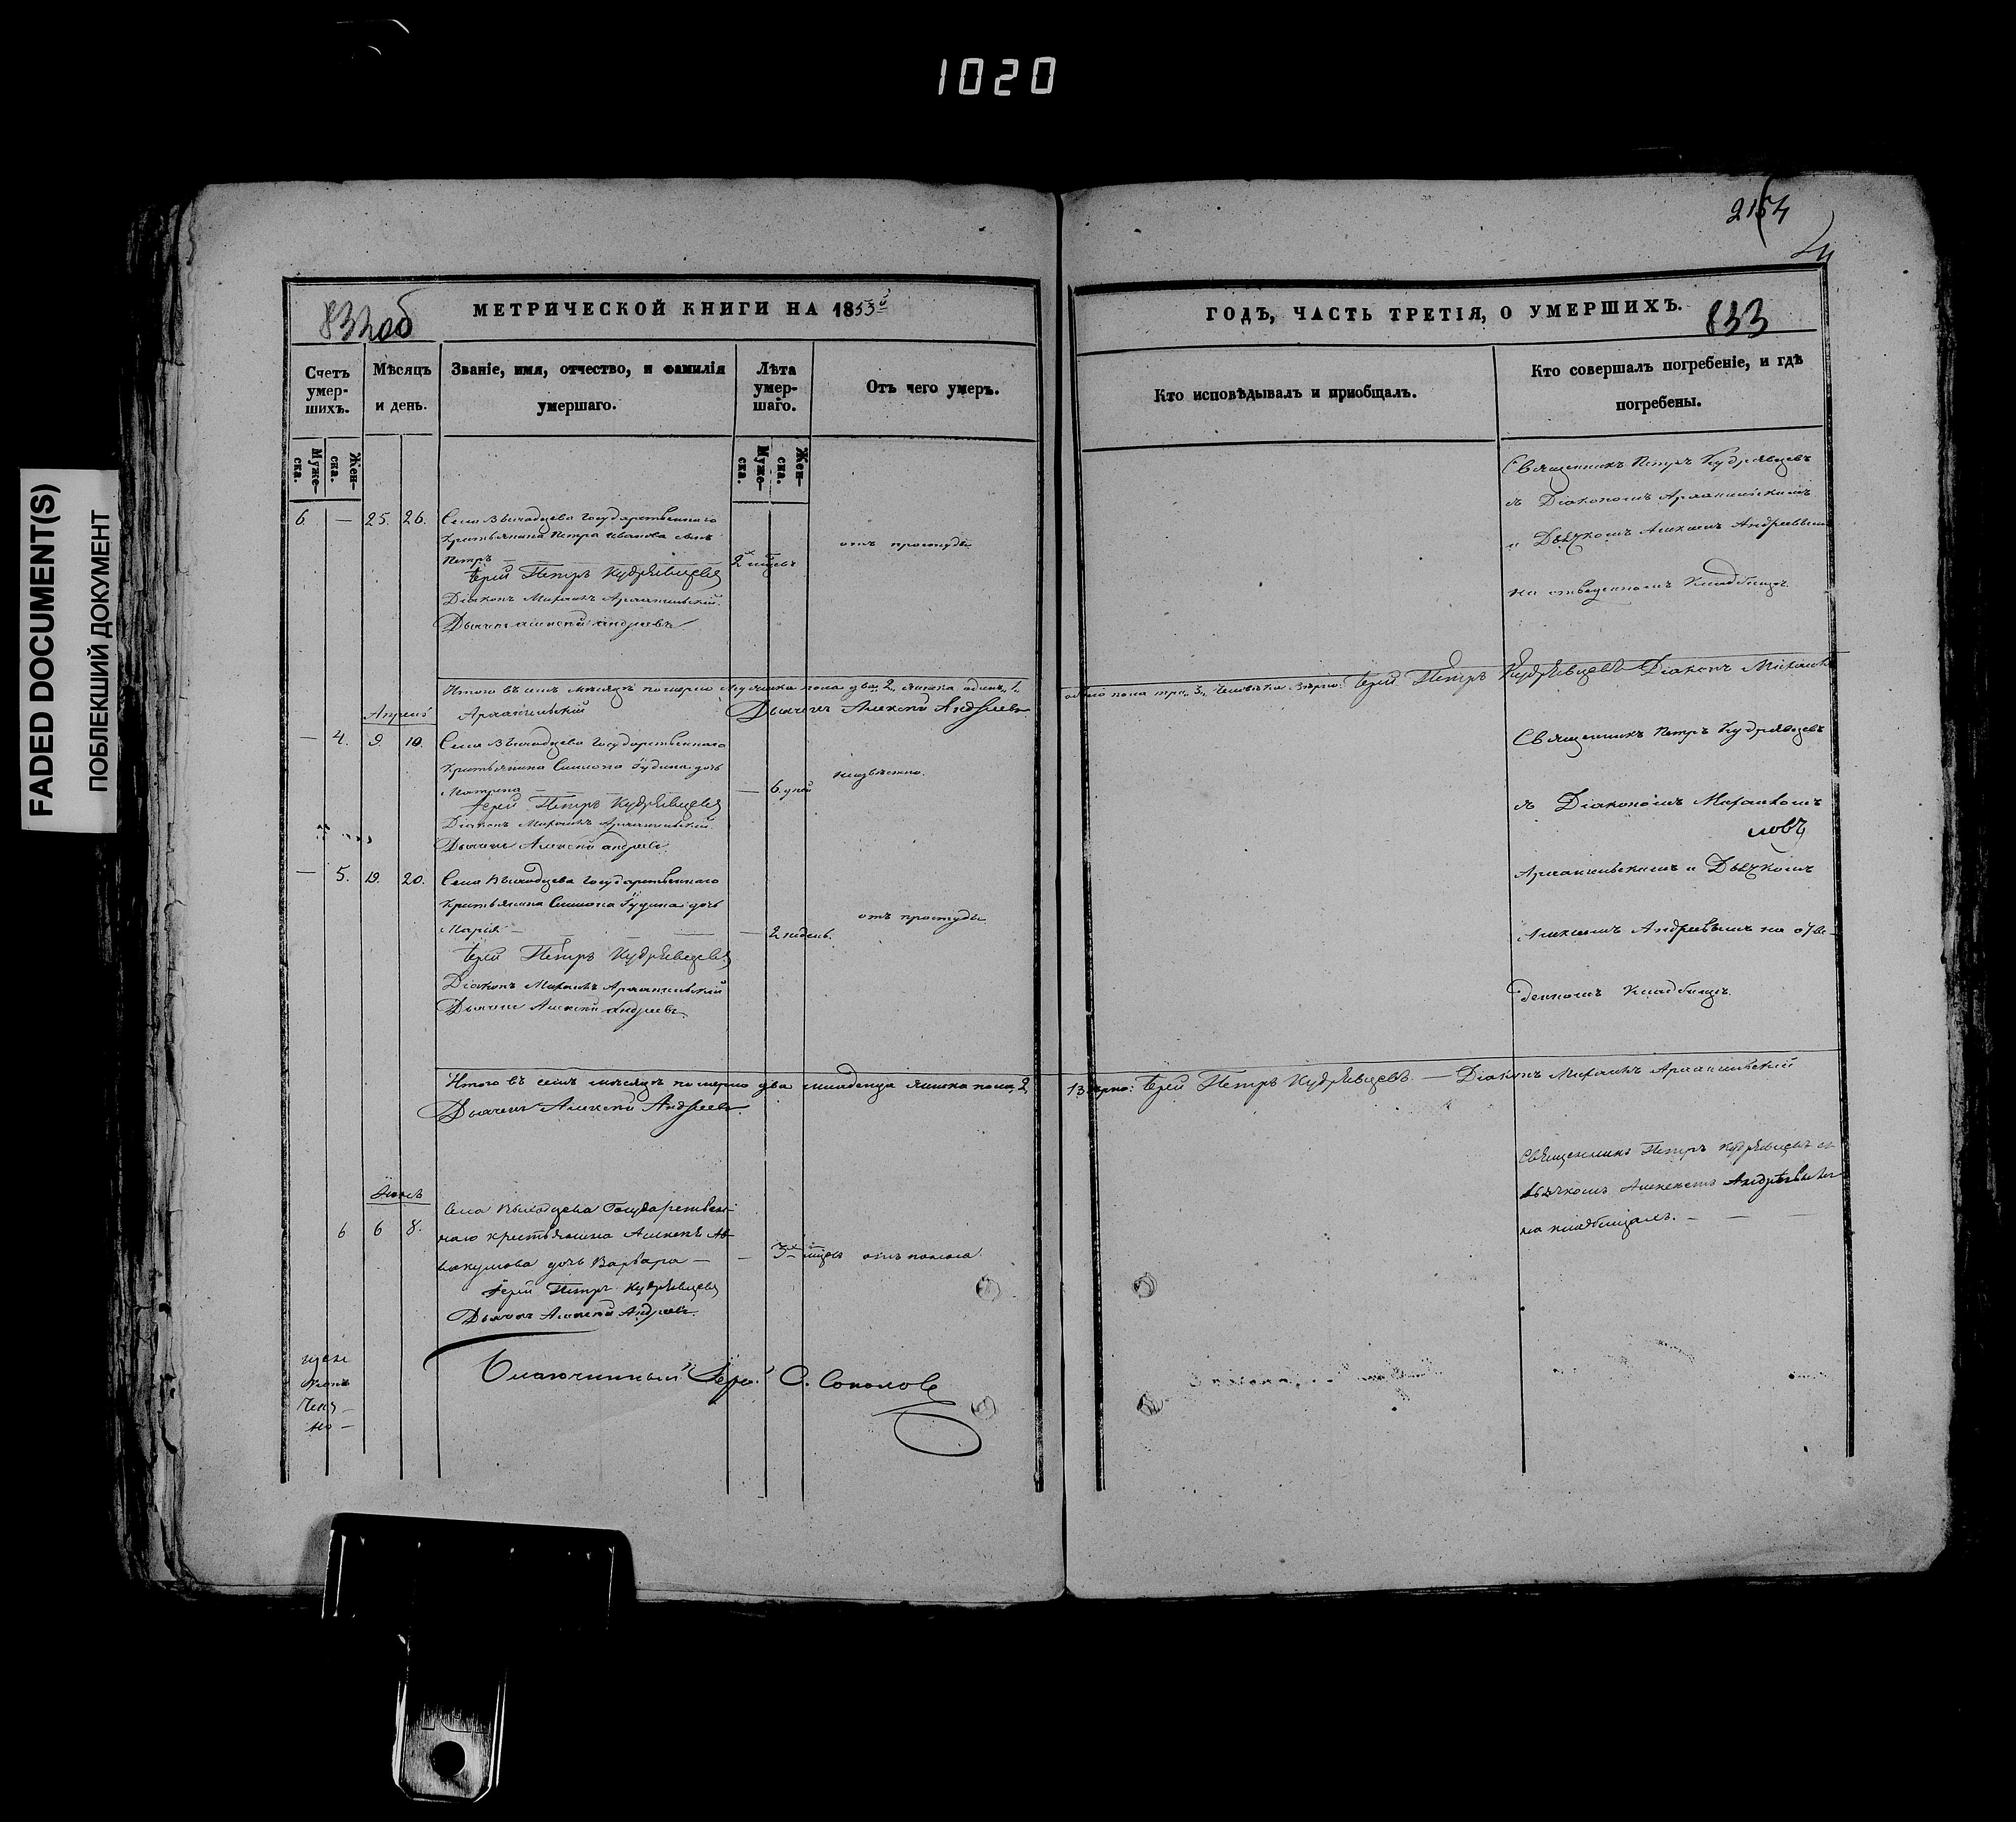 1020
FADED DOCUMENT(S)
ПОБЛЕКШИЙ ДОКУМЕНТ
832об
МЕТРИЧЕСКОЙ КНИГИ НА 1853й
Счетъ умер-шихъ.
Мѣсяцъ и день.
Званіе, имя, отчество, и фамилія умершаго.
Лѣта умер-шаго.
Отъ чего умеръ.
Муже-ска.
Жен-ска.
Муже-ска.
Жен-ска.
6. — 25. 26. Села Выходцева Государственнаго
Крестьянина Петра Иванова сынъ
Петръ — 2х мцевъ отъ простуды
Іерей Петръ Кудрявцевъ
Діаконъ Михаилъ Архангельскій
Дьячекъ Алексѣй Андреевъ
Итого въ семъ мѣсяцѣ померло мужеска пола два, 2, женска одинъ, 1,
Архангельскій Дьячекъ Алексѣй Андреевъ
Апрель
— 4. 9. 10. Села Выходцева Государственнаго
Крестьянина Симеона Гудина дочь
Матрена — — 6. дней неизвѣстно.
Іерей Петръ Кудрявцевъ
Діаконъ Михаилъ Архангельскій.
Дьячекъ Алексѣй Андреевъ
— 5. 19. 20. Села Выходцева Государственнаго
Крестьянина Симеона Гудина дочь
Марія — — 2 недель. отъ простуды
Іерей Петръ Кудрявцевъ
Діаконъ Михаилъ Архангельскій
Дьячекъ Алексѣй Андреевъ.
Итого въ семъ мѣсяцѣ померло два младенца женска пола, 2,
Дьячекъ Алексѣй Андреевъ.
6 6 8. Села Выходцева Государствен
наго крестьянина Алексѣя Ав-
вакумова дочь Варвара — — 3х мцевъ отъ поноса
Іерей Петръ Кудрявцевъ
Дьячекъ Алексѣй Андреевъ.
Благочинный Іерей С. Соколовъ
2154
ГОДЪ, ЧАСТЬ ТРЕТІЯ, О УМЕРШИХЪ.
833
Кто исповѣдывалъ и приобщалъ.
Кто совершалъ погребеніе, и гдѣ погребены.
Священникъ Петръ Кудрявцевъ
съ Діакономъ Архангельскимъ
и Дьячкомъ Алексѣемъ Андреевымъ
на отведенномъ Кладбищѣ.
обоего пола три, 3, человѣка. Вѣрно: Іерей Петръ Кудрявцевъ Діаконъ Михаилъ
Священникъ Петръ Кудрявцевъ
съ Діакономъ Михаиломъ
Архангельскимъ и Дьячкомъ
Алексѣемъ Андреевымъ на отве-
денномъ Кладбищѣ.
Вѣрно: Іерей Петръ Кудрявцевъ — Діаконъ Михаилъ Архангельскій
Священникъ Петръ Кудрявцевъ съ
дьячкомъ Алексѣемъ Андреевымъ
на кладбищѣ. —